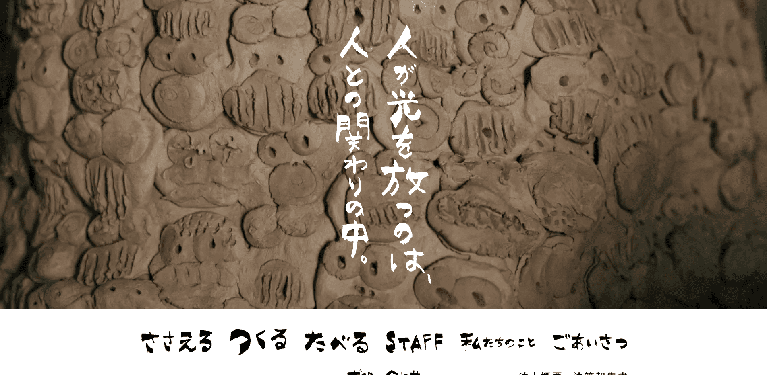 人が光を放つのは、
人との関わりの中。
ささえる つくる たべる STAFF 私たちのこと ごあいさつ